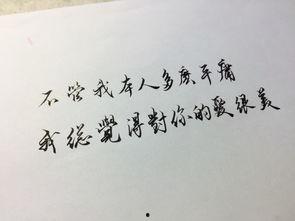 不管我本人多庅平庸
我總覺得對你的愛很美